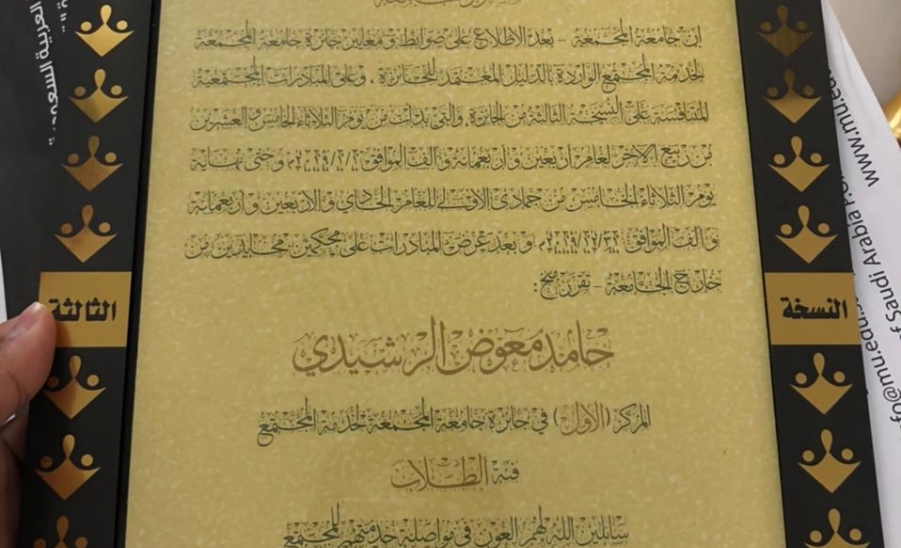 إن جامعة المجمعة – بعد الاطلاع على ضوابط ومعايير جائزة جامعة المجمعة
لخدمة المجتمع الواردة بالدليل المعتمد للجائزة، وعلى المبادرات المجتمعية
المتنافسة على النسخة الثالثة من الجائزة، والتي بدأت من يوم الثلاثاء الخامس والعشرين
من ربيع الآخر لعام أربعين وأربعمائة وألف الموافق وحتى نهاية
يوم الثلاثاء الخامس من جمادى الأولى للعام الحادي والأربعين وأربعمائة
وألف الموافق وبعد عرض المبادرات على محكمين محايدين من
خارج الجامعة – تقرر منح:
النسخة
الثالثة
حامد معوض الرشيدي
المركز (الأول) في جائزة جامعة المجمعة لخدمة المجتمع
فئة الطلاب
سائلين الله لهم العون في مواصلة خدمتهم للمجتمع
العربية السعودية
www.mu.edu
of Saudi Arabia
@mu.edu.s